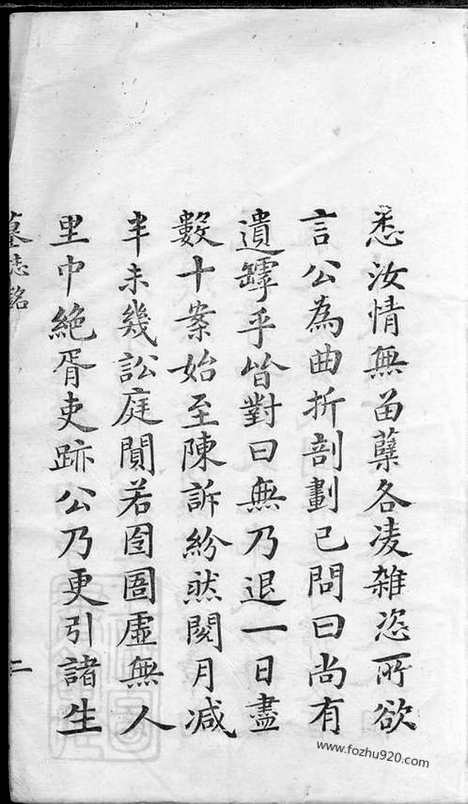 悉汝情無苗蘖各凌雜恣所欲
言公為曲折剖劃已問曰尚有
遺罅乎皆對曰無乃退一日盡
數十案始至陳訴紛然閱月减
半未幾訟庭閴若囹圄虛無人
里中絶胥吏跡公乃更引諸生
墓志銘
二
www.fozhu920.com